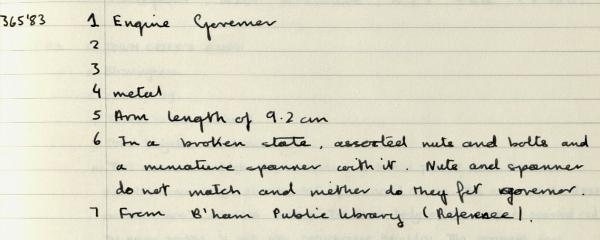 365'83 1 Engine Governor
2
3
4 metal
5 Arm length of 9.2 cm
6 In a broken state, assorted nuts and bolts and
a miniature spanner with it. Nuts and spanner
do not match and niether do they fit governor.
7 From B'ham Public library (Reference).